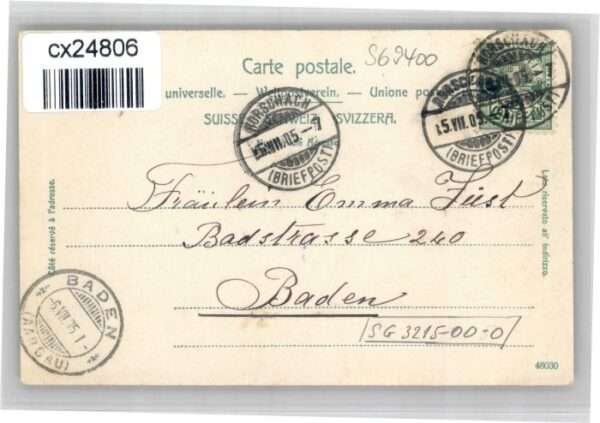 cx24806
S69400
Carte postale.
universelle. — Weltpostverein. — Unione
SUISSE. SCHWEIZ. SVIZZERA.
RORSCHACH
VII.05.-7
(BRIEFPOST)
15.VII.05.
(BRIEFPOST)
RORSCHACH
Côté réservé à l'adresse.
Lato riservato all' indirizzo.
Fräulein Emma Füst
Badstrasse 240
Baden
SG 3215-00-0
BADEN
(AARGAU)
48030